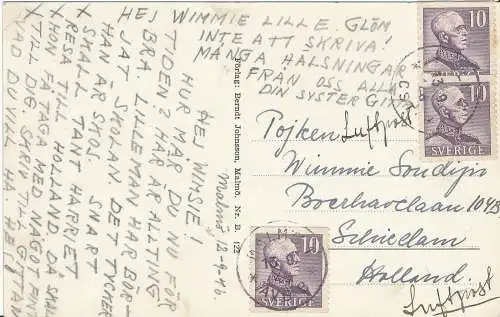 HEJ WIMMIE LILLE. GLÖM
INTE ATT SKRIVA!
MÅNGA HÄLSNINGAR
FRÅN OSS ALLA
DIN SYSTER GITT
HEJ WIMSIE!
HUR MÅR DU NU FÖR
TIDEN? HÄR ÄR ALLTING
BRA. LILLEMAN HAR BÖR-
JAT SKOLAN. DET TYCKER
HAN ÄR SKOJ.
X SKALL TANT HARRIET SNART
RESA TILL HOLLAND DÅ SKALL
X HON FÅ TAGA MED NÅGOT FINT
X TILL DIG. SKRIV TILL GITTAN
VAD DU VILL HA. HEJ
Malmö 12-9-46
Förlag: Berndt Johnsson, Malmö. Nr. B. 122
10
10
SVERIGE
10
SVERIGE
Pojken Luftpost
Wimmie
Boerhavelaan 104B
Schiedam
Holland
Luftpost